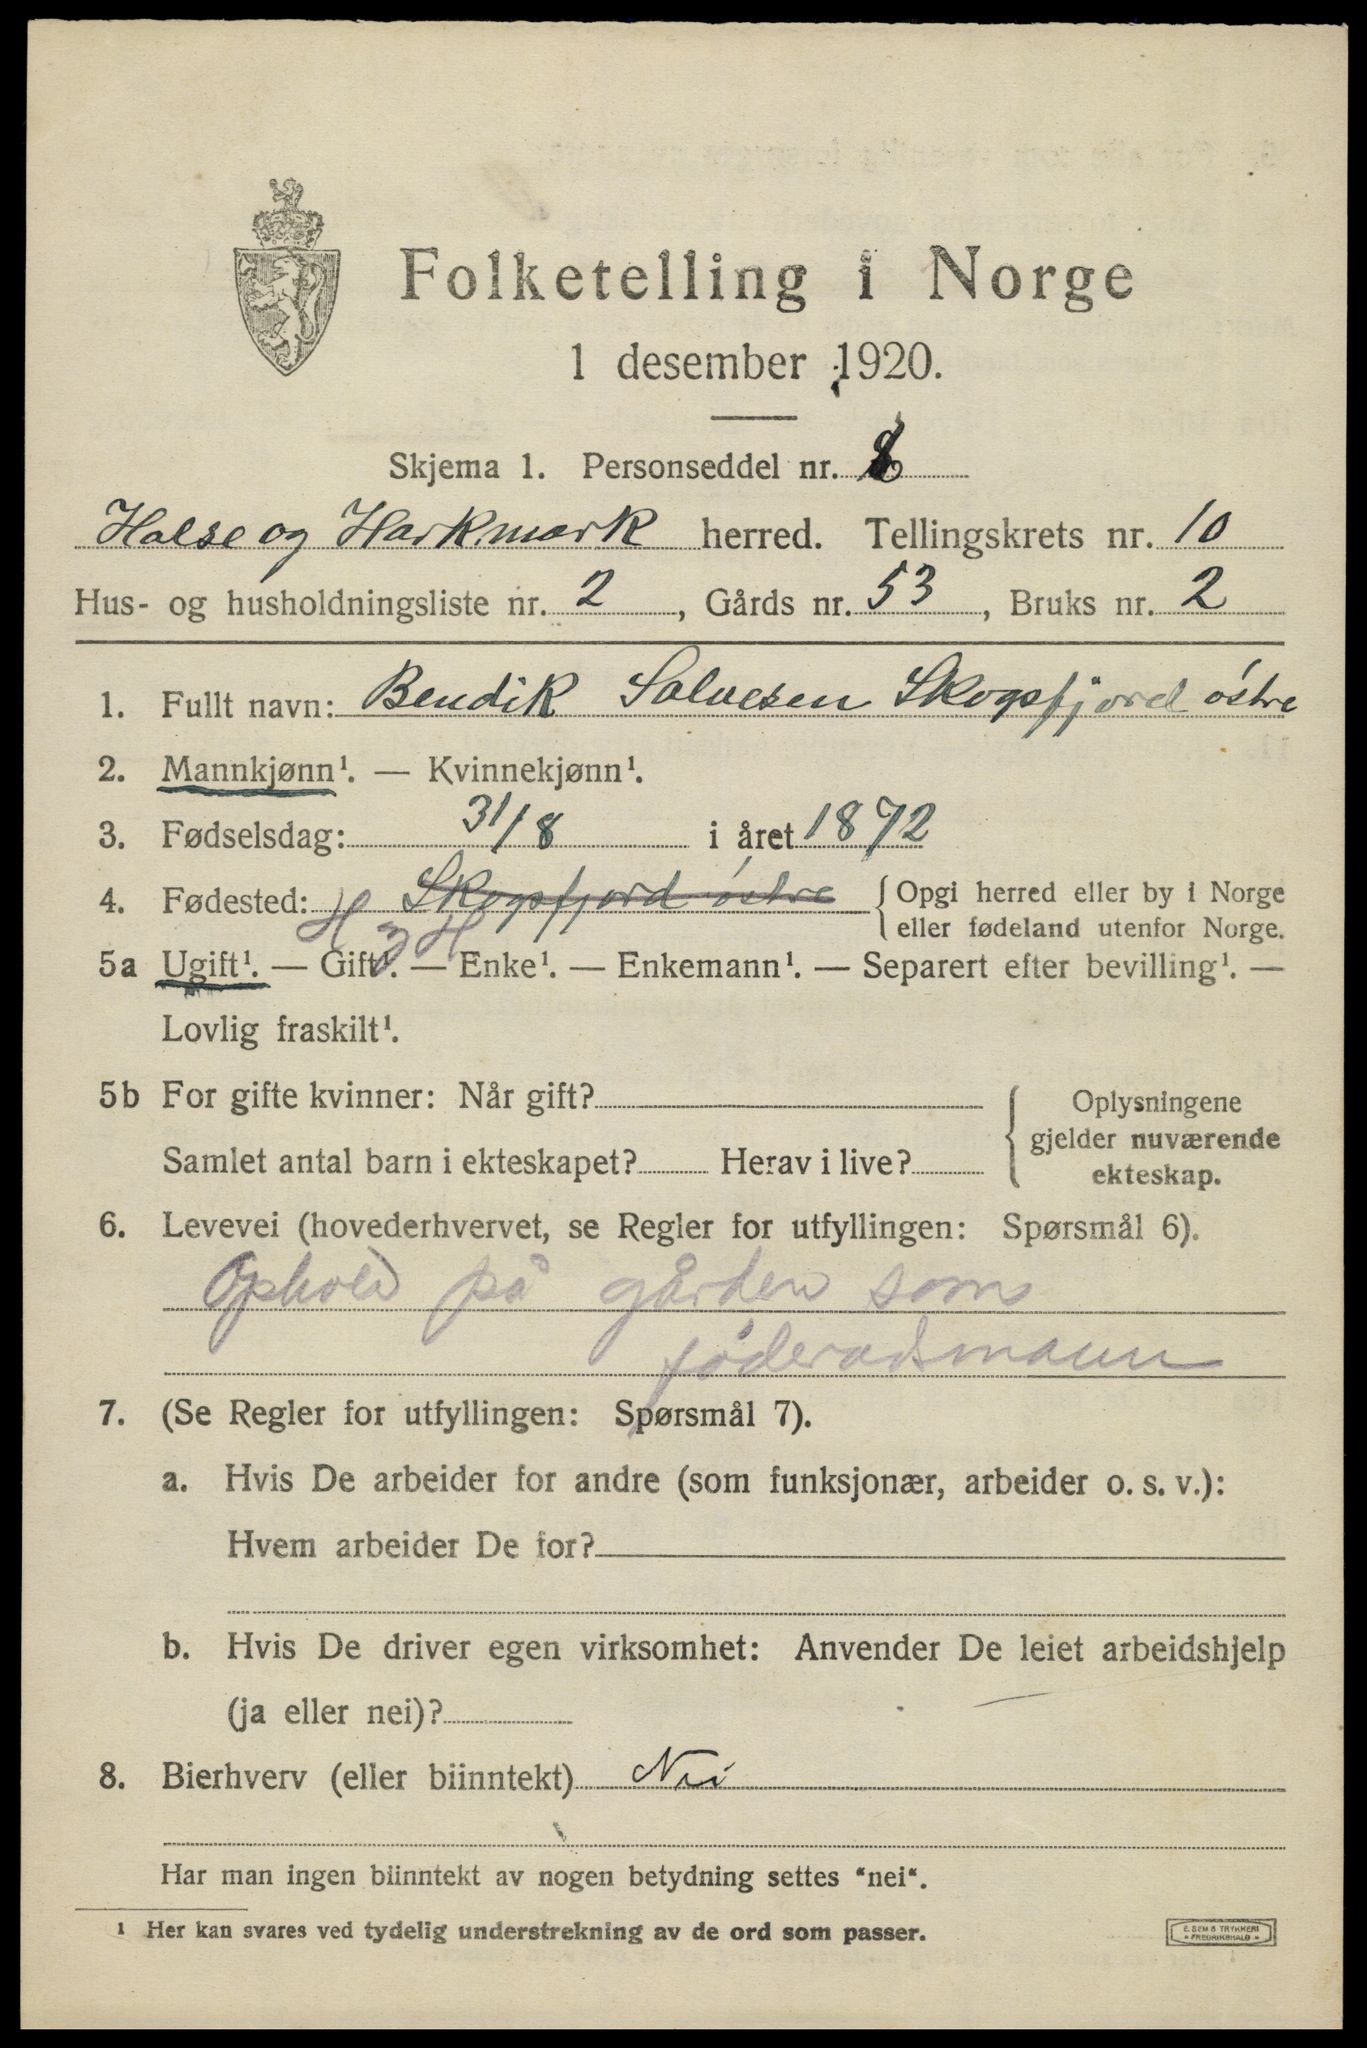 Folketelling i Norge
1 desember 1920.
Skjema 1. Personseddel nr.
Halse og Harkmark herred. Tellingskrets nr. 10
Hus- og husholdningsliste nr. 2, Gårds nr. 53, Bruks nr. 2
1. Fullt navn: Bendik Salvesen Skogsfjord østre
2. Mannkjønn¹. — Kvinnekjønn¹.
3. Fødselsdag: 31/8 i året 1872
4. Fødested: Skogsfjord østre { Opgi herred eller by i Norge
eller fødeland utenfor Norge.
H og H
5a Ugift¹. — Gift¹. — Enke¹. — Enkemann¹. — Separert efter bevilling¹. —
Lovlig fraskilt¹.
5b For gifte kvinner: Når gift? { Oplysningene
gjelder nuværende
Samlet antal barn i ekteskapet? Herav i live? ekteskap.
6. Levevei (hovederhvervet, se Regler for utfyllingen: Spørsmål 6).
Ophold på gården som
føderadsmann
7. (Se Regler for utfyllingen: Spørsmål 7).
a. Hvis De arbeider for andre (som funksjonær, arbeider o. s. v.):
Hvem arbeider De for?
b. Hvis De driver egen virksomhet: Anvender De leiet arbeidshjelp
(ja eller nei)?
8. Bierhverv (eller biinntekt) Nei
Har man ingen biinntekt av nogen betydning settes "nei".
¹ Her kan svares ved tydelig understrekning av de ord som passer.
E. SEM S TRYKKERI
FREDRIKSHALD